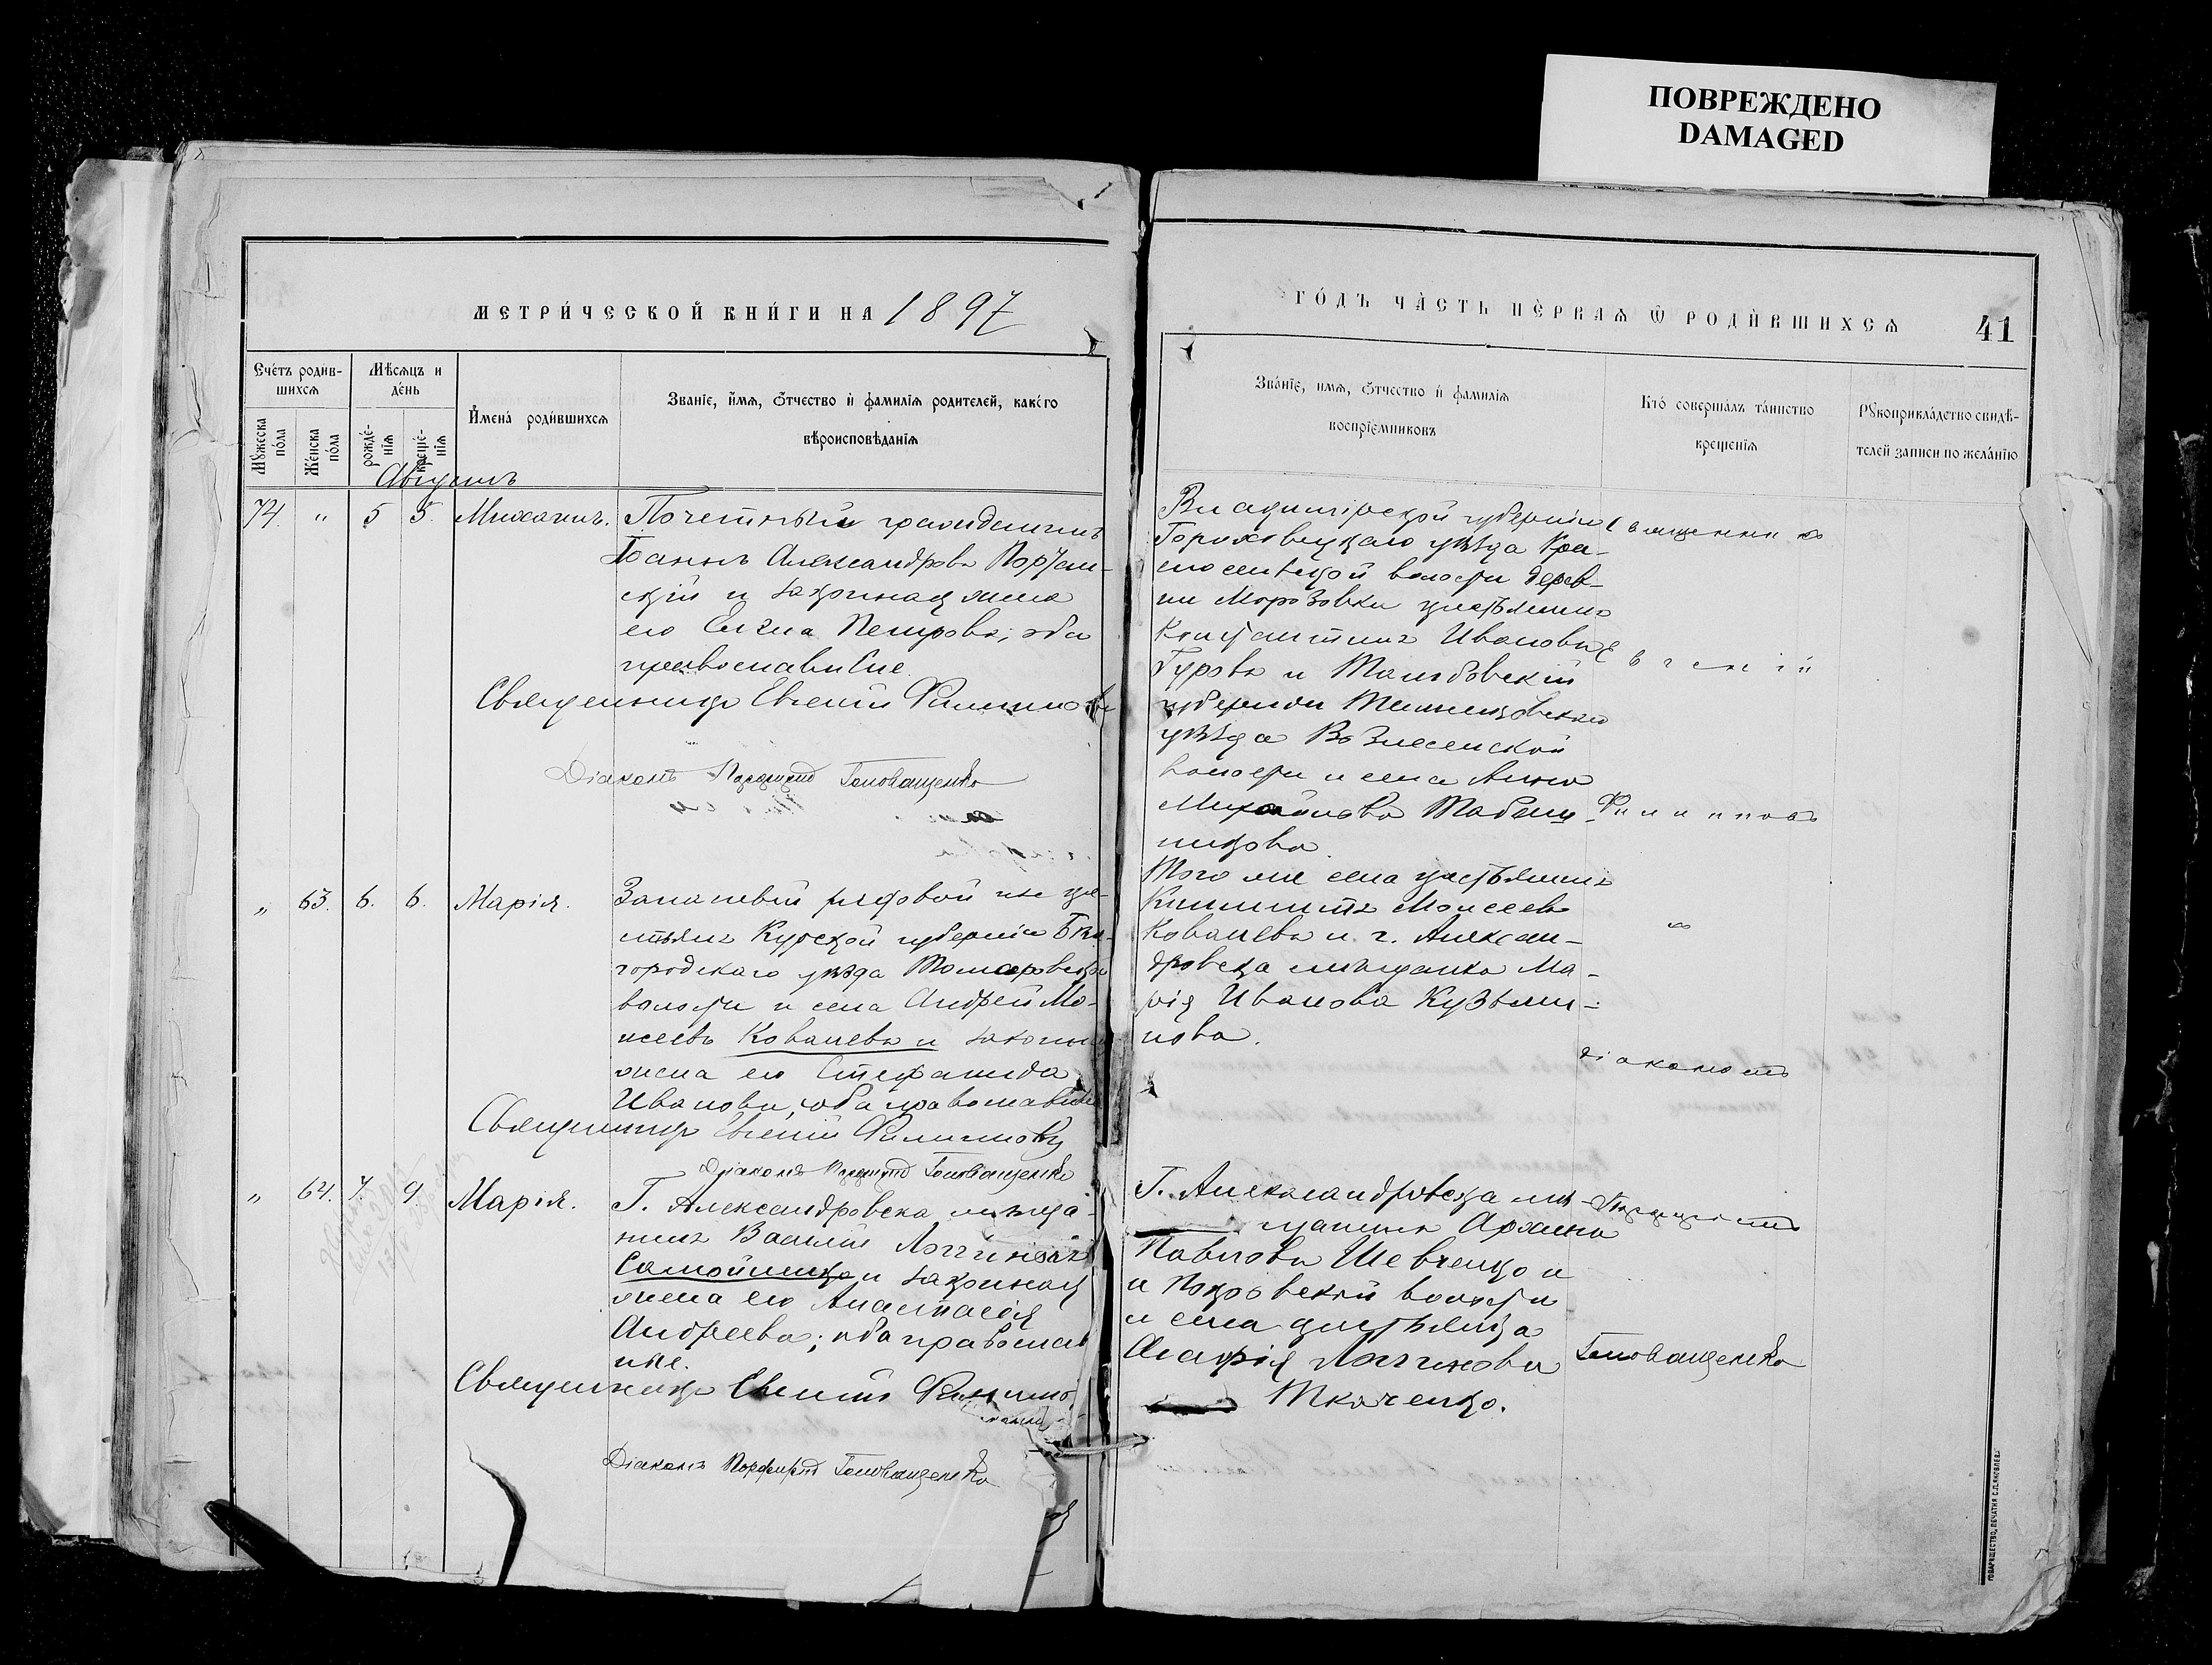 ПОВРЕЖДЕНО
DAMAGED
МЕТРИ́ЧЕСКОЙ КНИ́ГИ НА 1897
ГО́ДЪ ЧА́СТЬ ПЕ́РВАЯ Ѡ РОДИ́ВШИХСѦ
41
Счётъ роди́в-
шихсѧ
Мѣ́сѧцъ и
де́нь
Мꙋ́жеска
по́ла
Же́нска
по́ла
рожде́-
нїѧ
креще́-
нїѧ
Имена́ роди́вшихсѧ
Зва́нїе, и́мѧ, ѻ́тчество и҆ фами́лїѧ роди́телей, како́го
вѣроисповѣ́данїѧ
Зва́нїе, и́мѧ, ѻ́тчество и҆ фами́лїѧ
воспрїе́мниковъ
Кто̀ соверша́лъ та́инство
креще́нїѧ
Рꙋкоприкла́дство свидѣ́-
телей записи по жела́нїю
Августъ
74. " 5 5. Михаилъ.
Почетный гражданинъ
Іоаннъ Александровъ
и законная жена
его Елена Петрова; оба
православные.
Священникъ Евгеній Филипповъ
Діаконъ Порфирій Головащенко
Владимірской губерніи
Гороховецкаго уѣзда Кра-
сносельской волости дерев-
ни Морозовки крестьянинъ
Константинъ Ивановъ
Гуровъ и Тамбовской
губерніи Темниковскаго
уѣзда Вознесенской
волости и села Анна
Михайлова Табаш-
никова.
Священникъ
Евгеній
Филипповъ
" 63. 6. 6. Марія.
Запасный рядовой изъ кре-
стьянъ Курской губерніи Бѣл-
городскаго уѣзда Томаровской
волости и села Андрей Мо-
исеевъ Ковалевъ и законная
жена его Стефанида
Иванова, оба православные
Священникъ Евгеній Филипповъ
Діаконъ Порфирій Головащенко
Того же села крестьянинъ
Моисеевъ
Ковалевъ и г. Алексан-
дровска мѣщанка Ма-
рія Иванова Кузьми-
нова.
съ
діакономъ
" 64. 7. 9. Марія.
Г. Александровска мѣща-
нинъ Василій Логгиновъ
Самойленко и законная
жена его Анастасія
Андреева; оба православ
ные.
Священникъ Евгеній Филиппо
Діаконъ Порфирій Головащенко
Г. Александровска мѣ-
щанинъ Архипъ
Павловъ Шевченко и
и Покровской волости
и села крестьянка
Агафія Логгинова
Ткаченко.
Порфиріемъ
Головащенко
ТОВАРИЩЕСТВО, ПЕЧАТНЯ С.П.ЯКОВЛЕВА.